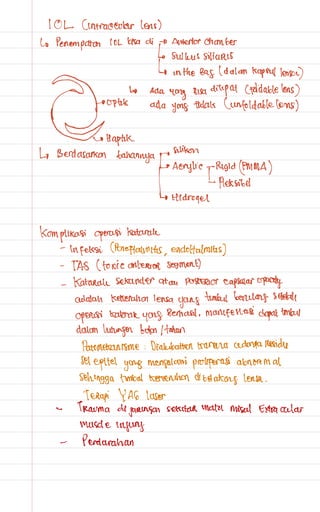 IOL (intraocular lens)
↳ Penempatan IOL bisa di → Anterior chamber
→ Sulkus siliaris
→ in the bag (dalam kapsul lensa)
↳ Ada yang bisa dilipat (foldable lens)
ada yang tidak (unfoldable lens)
→ Optik
→ Haptik
↳ Berdasarkan bahannya → Silikon
→ Acrylic → Rigid (PMMA)
→ Fleksibel
→ Hidrogel
Komplikasi operasi katarak
- Infeksi (Panoftalmitis, endoftalmitis)
- TAS (toxic anterior segment)
- Katarak sekunder atau posterior capsular opacity
adalah kekeruhan lensa yang timbul berulang setelah
operasi katarak yang berhasil, manifestasi dapat timbul
dalam hitungan bulan/tahun
Patomekanisme : Diakibatkan karena adanya residu
sel epitel yang mengalami proliferasi abnormal
sehingga timbul kekeruhan di belakang lensa.
Terapi YAG laser
- Trauma di jaringan sekitar mata misal Extra ocular
muscle injury
- Perdarahan